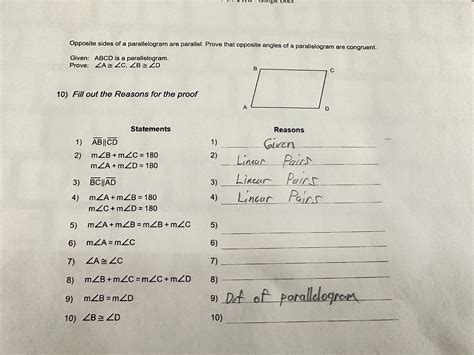 Opposite sides of a parallelogram are parallel. Prove that opposite angles of a parallelogram are congruent.
Given: ABCD is a parallelogram.
Prove: ∠A ≅ ∠C, ∠B ≅ ∠D
B C
A D
10) Fill out the Reasons for the proof
Statements Reasons
1) AB||CD 1) Given
2) m∠B + m∠C = 180 2) Linear Pairs
m∠A + m∠D = 180
3) BC||AD 3) Linear Pairs
4) m∠A + m∠B = 180 4) Linear Pairs
m∠C + m∠D = 180
5) m∠A + m∠B = m∠B + m∠C 5)
6) m∠A = m∠C 6)
7) ∠A ≅ ∠C 7)
8) m∠B + m∠C = m∠C + m∠D 8)
9) m∠B = m∠D 9) Def of parallelogram
10) ∠B ≅ ∠D 10)